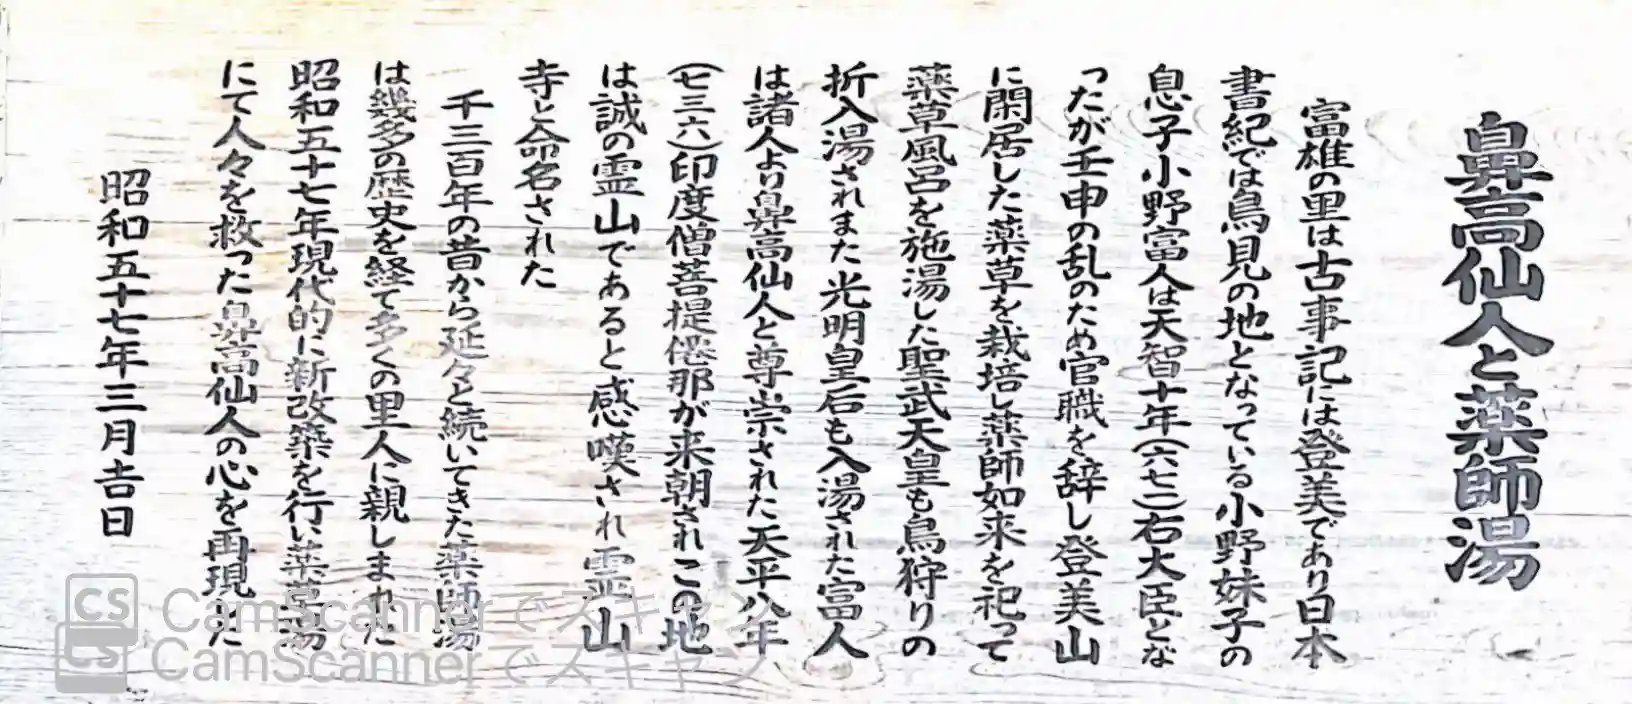 鼻高仙人と薬師湯
富雄の里は古事記には登美であり日本
書紀では鳥見の地となっている小野妹子の
息子小野富人は天智十年(六七二)右大臣とな
ったが壬申の乱のため官職を辞し登美山
に閑居した薬草を栽培し薬師如来を祀って
薬草風呂を施湯した聖武天皇も鳥狩りの
折入湯されまた光明皇后も入湯された富人
は諸人より鼻高仙人と尊崇された天平八年
(七三六)印度僧菩提僊那が来朝されこの地
は誠の霊山であると感嘆され霊山
寺と命名された
千三百年の昔から延々と続いてきた薬師湯
は幾多の歴史を経て多くの里人に親しまれた
昭和五十七年現代的に新改築を行い薬草湯
にて人々を救った鼻高仙人の心を再現した
昭和五十七年三月吉日
CS CamScannerでスキャン
CS CamScannerでスキャン